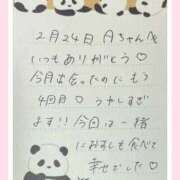 2月24日 Aちゃんへ
いつもありがとう♡
今月会ったのにもう
4回目♡ うれしすぎ
ます!! 今回は一緒
におすしも食べて
幸せでした♡